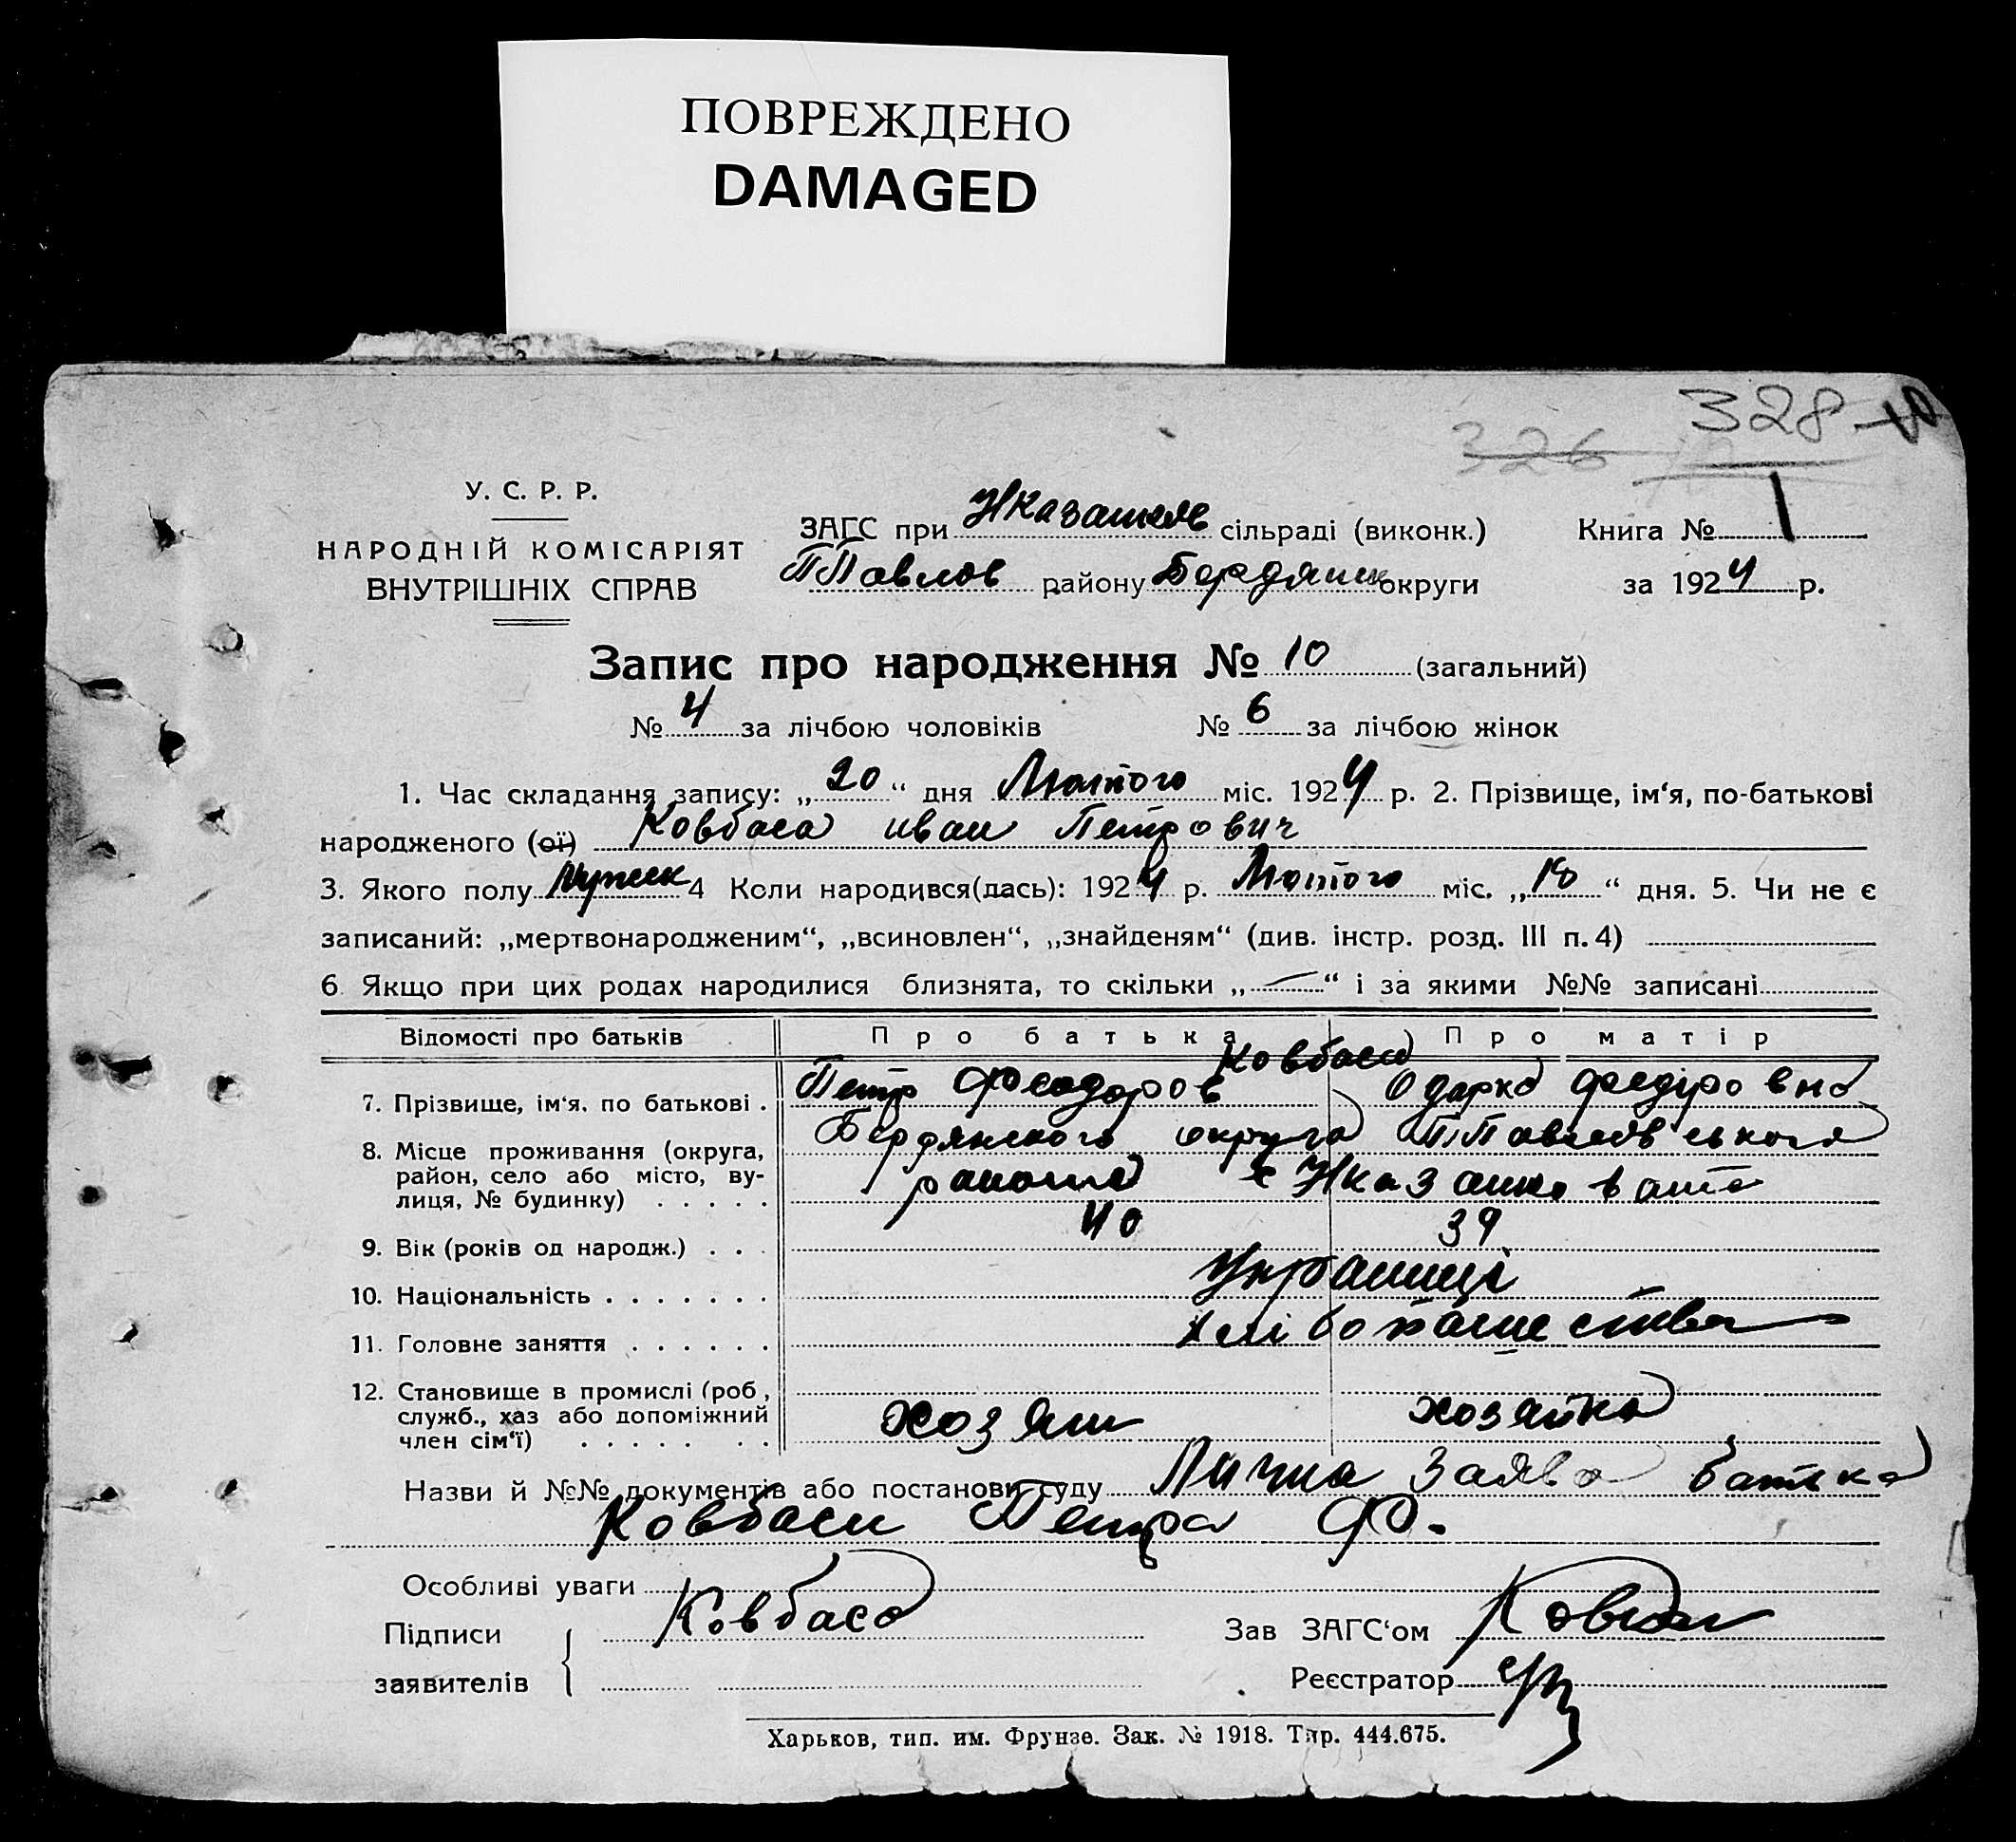 ПОВРЕЖДЕНО
DAMAGED
328
326
У. С. Р. Р.
НАРОДНІЙ КОМІСАРІЯТ
ВНУТРІШНІХ СПРАВ
ЗАГС при сільраді (виконк.)
Книга № 1
ППавлов району Бердянськ округи
за 1924 р.
Запис про народження № 10 (загальний)
№ 4 за лічбою чоловіків № 6 за лічбою жінок
1. Час складання запису: „20“ дня Лютого міс. 1924 р. 2. Прізвище, ім‘я, по-батькові
народженого (ої) Ковбаса иван Петрович
3. Якого полу мужеск 4 Коли народився(лась): 1924 р. Лютого міс. „18“ дня. 5. Чи не є
записаний: „мертвонародженим“, „всиновлен“, „знайденям“ (див. інстр. розд. III п. 4)
6. Якщо при цих родах народилися близнята, то скільки „—“ і за якими №№ записані
Відомості про батьків Про батька Про матір
Ковбаси
7. Прізвище, ім‘я. по батькові . Петр Феодоров Одарка Федіровна
8. Місце проживання (округа, Бердянского округа П.Павловського
район, село або місто, ву-
лиця, № будинку) . . . . . района с
9. Вік (років од народж.) . . . 40 39
10. Національність . . . . . . . Українці
11. Головне заняття . . . . . . хлібопашество
12. Становище в промислі (роб,
служб., хаз або допоміжний
член сім‘ї) . . . . . . . хозяин хозяйка
Назви й №№ документів або постанови суду Лична заява батька
Ковбаси Петра Ф.
Особливі уваги
Підписи Ковбаса Зав ЗАГС‘ом
заявителів Реєстратор
Харьков, тип. им. Фрунзе. Зак. № 1918. Тир. 444.675.